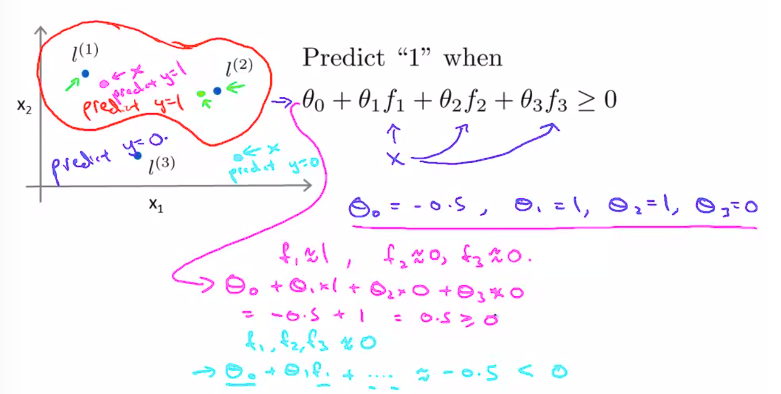 l⁽¹⁾
← x
predict y=1
l⁽²⁾
predict y=1
x₂
predict y=0.
l⁽³⁾
← x
predict y=0
x₁
Predict “1” when
→ θ₀ + θ₁f₁ + θ₂f₂ + θ₃f₃ ≥ 0
x
θ₀ = -0.5, θ₁ = 1, θ₂ = 1, θ₃ = 0
f₁ ≈ 1, f₂ ≈ 0, f₃ ≈ 0.
→ θ₀ + θ₁ × 1 + θ₂ × 0 + θ₃ × 0
= -0.5 + 1 = 0.5 ≥ 0
f₁, f₂, f₃ ≈ 0
→ θ₀ + θ₁f₁ + .... ≈ -0.5 < 0